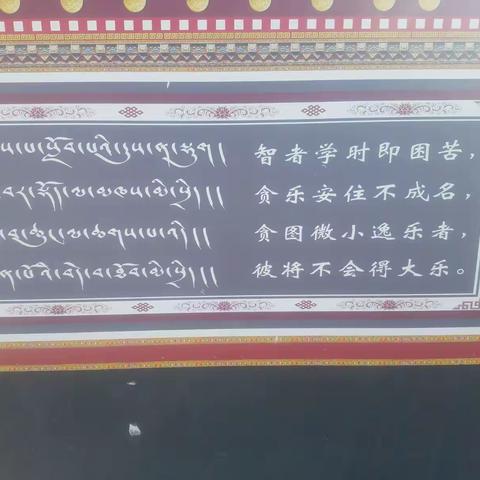 པ་སློབ་པའི་དུས་ན་སྡུག །
བར་སྡོད་ལ་མཁས་མི་
བ་ཆུང་ལ་ཆགས་པ་
བདེ་བ་ཐོབ་མི་
智者学时即困苦，
贪乐安住不成名，
贪图微小逸乐者，
彼将不会得大乐。